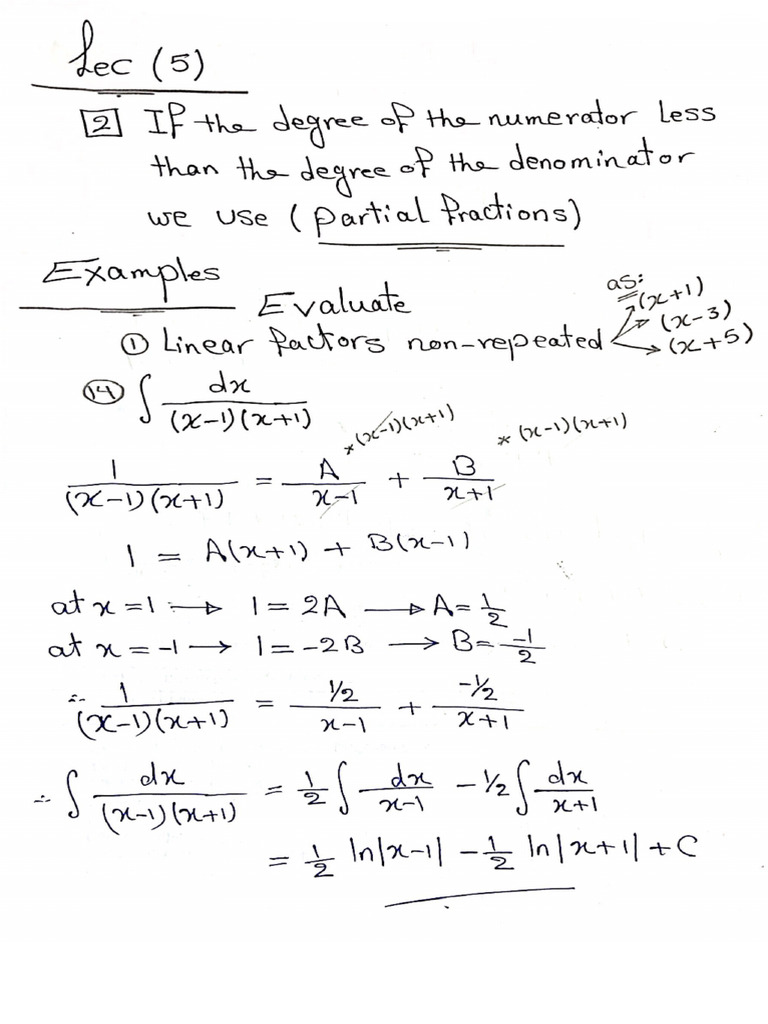 Lec (5)
[2] If the degree of the numerator less
than the degree of the denominator
we use (partial fractions)
Examples
Evaluate
as:
(x+1)
① Linear factors non-repeated (x-3)
(x+5)
⑭ ∫ dx / (x-1)(x+1)
* (x-1)(x+1) * (x-1)(x+1)
1 / (x-1)(x+1) = A / x-1 + B / x+1
1 = A(x+1) + B(x-1)
at x = 1 → 1 = 2A → A = 1/2
at x = -1 → 1 = -2B → B = -1/2
∴ 1 / (x-1)(x+1) = 1/2 / x-1 + -1/2 / x+1
∴ ∫ dx / (x-1)(x+1) = 1/2 ∫ dx / x-1 - 1/2 ∫ dx / x+1
= 1/2 ln|x-1| - 1/2 ln|x+1| + C